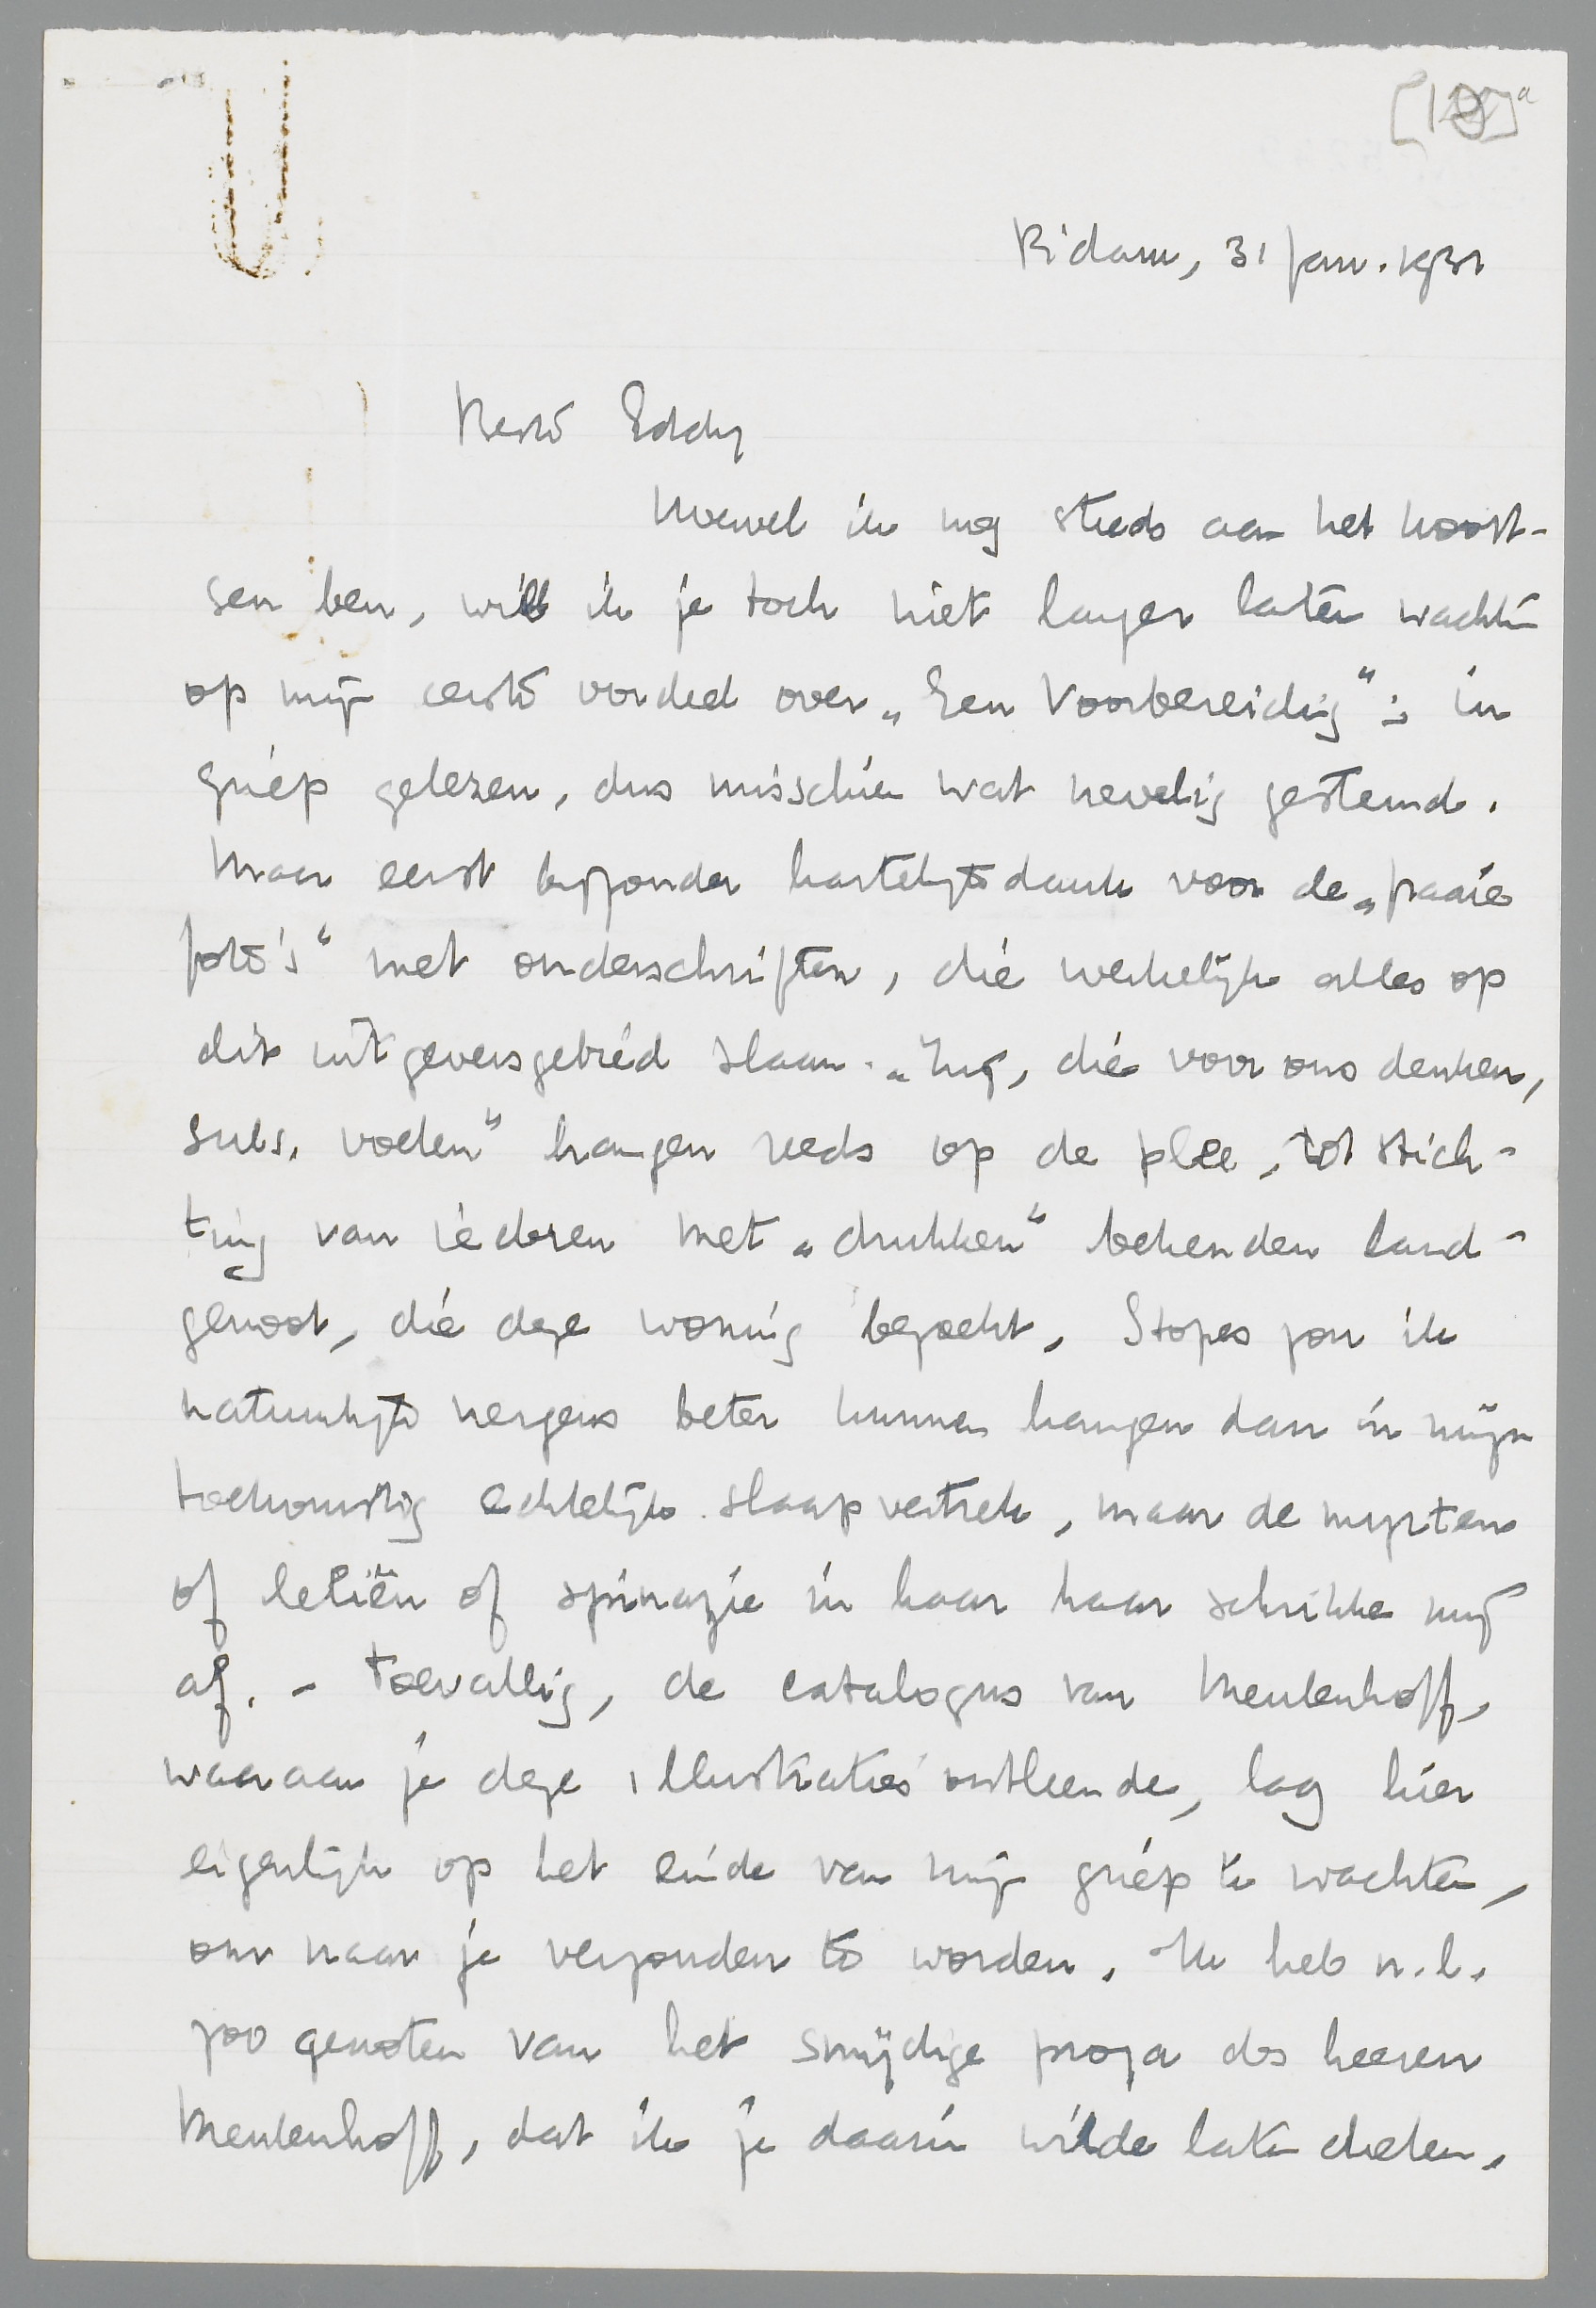 [19]a
R'dam, 31 Jan. 1931
Beste Eddy
Hoewel ik nog steeds aan het hoest-
sen ben, will ik je toch niet langer laten wachten
op mijn eerste oordeel over „Een Voorbereiding”; in
griep gelezen, dus misschien wat nevelig gestemd.
Maar eerst bijzonder hartelijk dank voor de „fraaie
foto's” met onderschriften, die werkelijk alles op
dit uitgeversgebied slaan. „Zij, die voor ons denken,
subs. voelen” hangen reeds op de plee, tot stich-
ting van iederen met „drukken” bekenden land-
genoot, die deze woning bezoekt. Stopes zou ik
natuurlijk nergens beter kunnen hangen dan in mijn
toekomstig echtelijk slaapvertrek, maar de myrten
of leliën of spinazie in haar haar schrikken mij
af. – Toevallig, de catalogus van Meulenhoff,
waaraan je deze illustraties ontleende, lag hier
eigenlijk op het einde van mijn griep te wachten,
om naar je verzonden te worden. Ik heb n.l.
zoo genoten van het smijdige proza des heeren
Meulenhoff, dat ik je daarin wilde laten deelen.